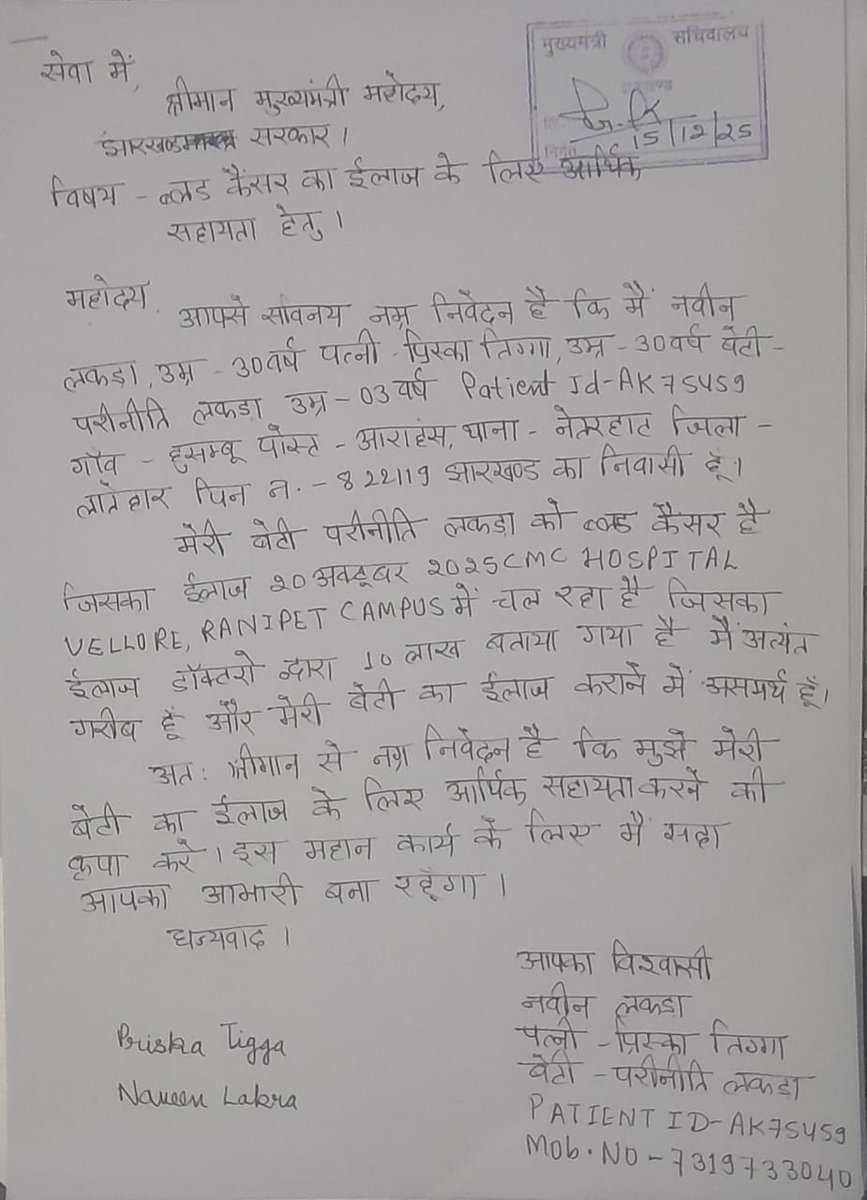 मुख्यमंत्री सचिवालय
15/12/25
सेवा में,
श्रीमान मुख्यमंत्री महोदय,
झारखण्ड सरकार।
विषय - ब्लड कैंसर का ईलाज के लिए आर्थिक
सहायता हेतु।
महोदय,
आपसे सविनय नम्र निवेदन है कि मैं नवीन
लकड़ा, उम्र - 30 वर्ष पत्नी - प्रिस्का तिग्गा, उम्र - 30 वर्ष बेटी -
परीनीति लकड़ा उम्र - 03 वर्ष Patient Id-AK75459
गाँव - हुसम्बू पोस्ट - आराहंस, थाना - नेतरहाट जिला -
लातेहार पिन न. - 822119 झारखण्ड का निवासी हूँ।
मेरी बेटी परीनीति लकड़ा को ब्लड कैंसर है
जिसका ईलाज 20 अक्टूबर 2025 CMC HOSPITAL
VELLORE, RANIPET CAMPUS में चल रहा है जिसका
ईलाज डॉक्टरो द्वारा 10 लाख बताया गया है मैं अत्यंत
गरीब हूँ और मेरी बेटी का ईलाज कराने में असमर्थ हूँ।
अत: श्रीमान से नम्र निवेदन है कि मुझे मेरी
बेटी का ईलाज के लिए आर्थिक सहायता करने की
कृपा करे। इस महान कार्य के लिए मैं सदा
आपका आभारी बना रहूँगा।
धन्यवाद।
आपका विश्वासी
नवीन लकड़ा
पत्नी - प्रिस्का तिग्गा
बेटी - परीनीति लकड़ा
PATIENT ID-AK75459
Mob. NO - 7319733040
Priska Tigga
Naveen Lakra